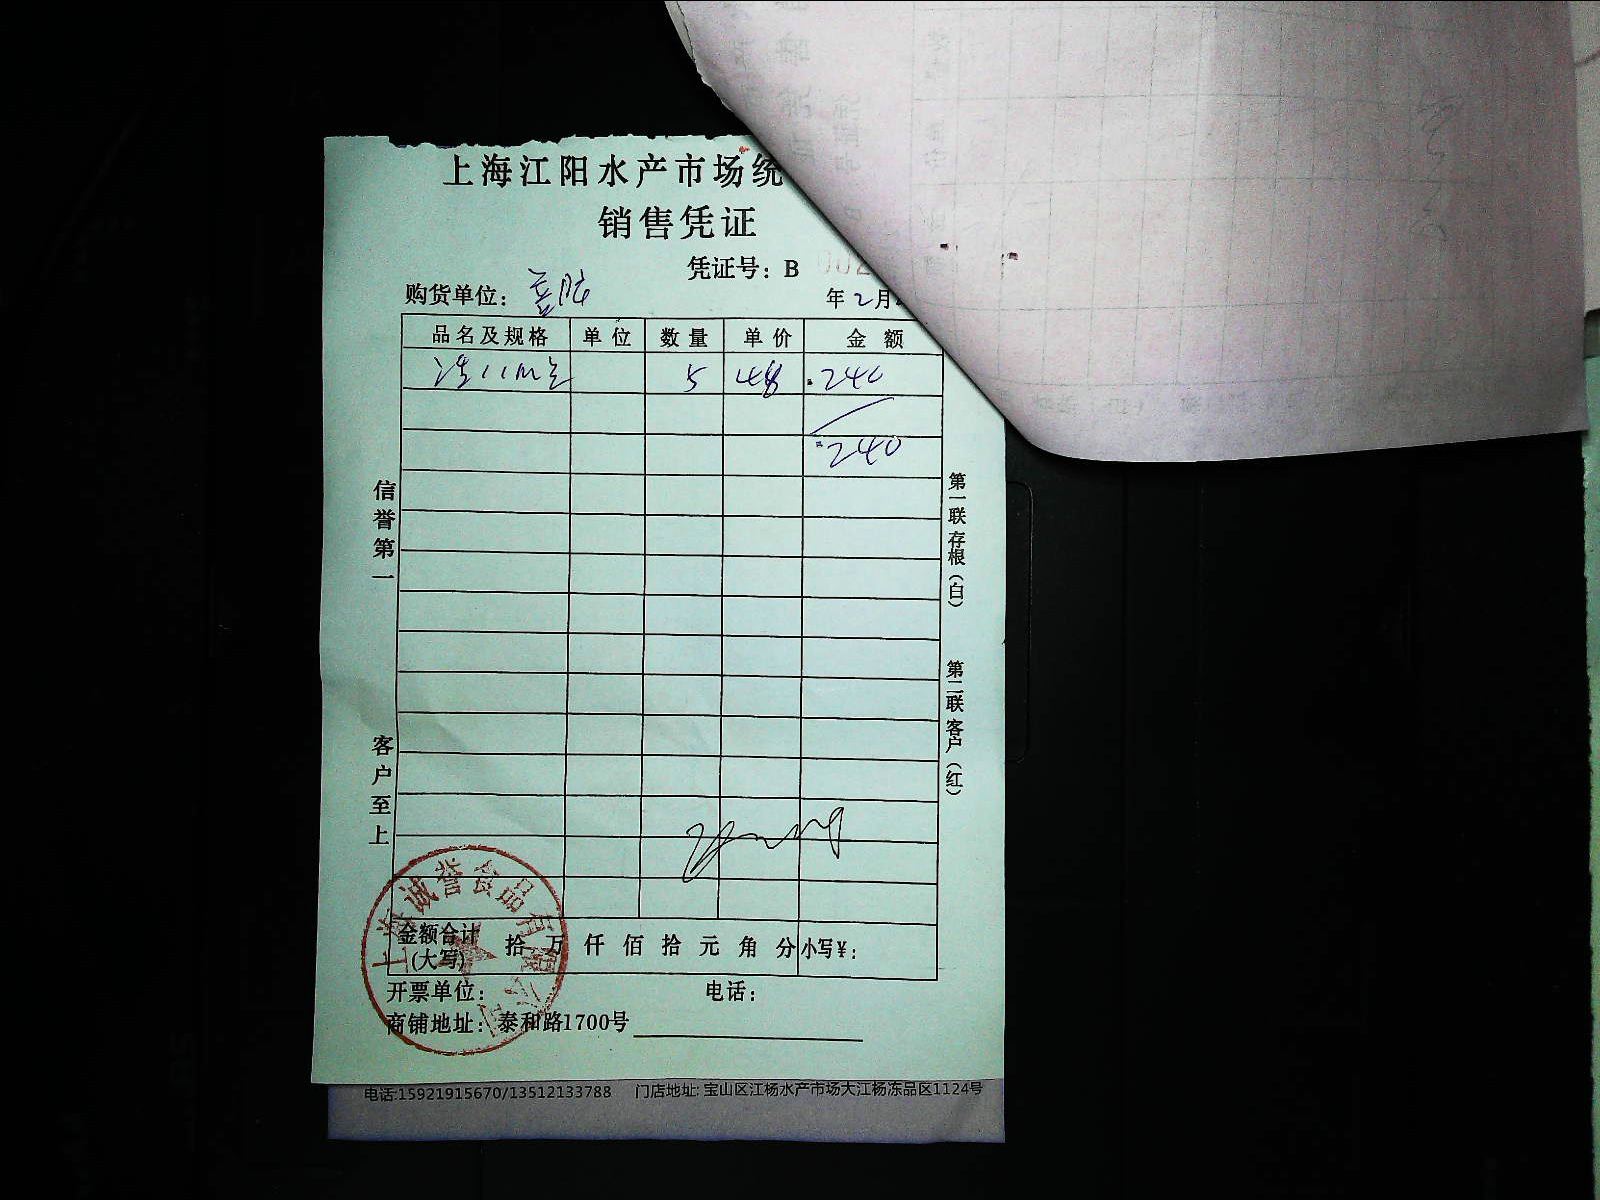 上海江阳水产市场统
销售凭证
凭证号：B 002
购货单位：
年2月
品名及规格 单位 数量 单价 金额
5 48 240
240
信誉第一
客户至上
第一联存根（白）
第二联客户（红）
上海诚誉食品有限公司
金额合计(大写) 拾万仟佰拾元角分 小写￥：
开票单位： 电话：
商铺地址：泰和路1700号
电话:15921915670/13512133788 门店地址: 宝山区江杨水产市场大江杨冻品区1124号